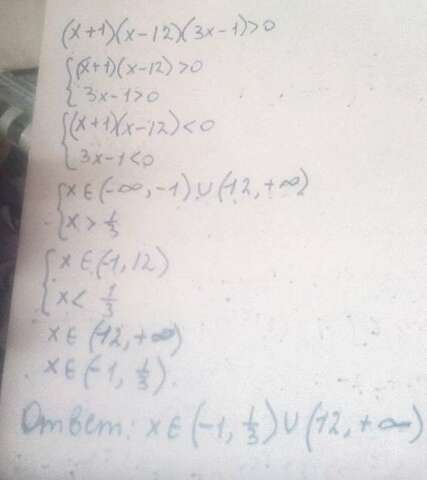 (x+1)(x-12)(3x-1)>0
{(x+1)(x-12)>0
3x-1>0
{(x+1)(x-12)<0
3x-1<0
{x∈(-∞,-1)∪(12,+∞)
x>1/3
{x∈(-1,12)
x<1/3
x∈(12,+∞)
x∈(-1,1/3).
Ответ: x∈(-1,1/3)∪(12,+∞)